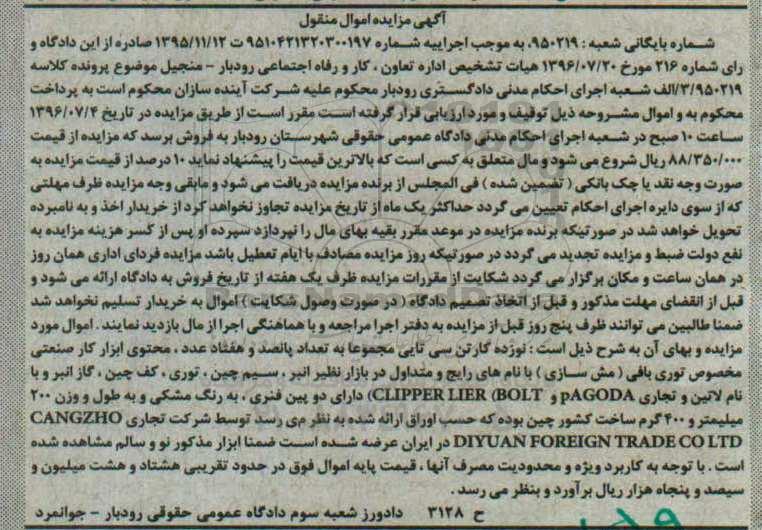 آگهی مزایده اموال منقول
شماره بایگانی شعبه : ۹۵۰۲۱۹، به موجب اجراییه شماره ۹۵۱۰۴۲۱۳۲۰۳۰۰۱۹۷ ت ۱۳۹۵/۱۱/۱۲ صادره از این دادگاه و
رای شماره ۲۱۶ مورخ ۱۳۹۶/۰۷/۲۰ هیات تشخیص اداره تعاون ، کار و رفاه اجتماعی رودبار - منجیل موضوع پرونده کلاسه
۳/۹۵۰۲۱۹/الف شعبه اجرای احکام مدنی دادگستری رودبار محکوم علیه شرکت آینده سازان محکوم است به پرداخت
محکوم به و اموال مشروحه ذیل توقیف و مورد ارزیابی قرار گرفته است مقرر است از طریق مزایده در تاریخ ۱۳۹۶/۰۷/۴
ساعت ۱۰ صبح در شعبه اجرای احکام مدنی دادگاه عمومی حقوقی شهرستان رودبار به فروش برسد که مزایده از قیمت
۸۸/۳۵۰/۰۰۰ ریال شروع می شود و مال متعلق به کسی است که بالاترین قیمت را پیشنهاد نماید ۱۰ درصد از قیمت مزایده به
صورت وجه نقد یا چک بانکی ( تضمین شده ) فی المجلس از برنده مزایده دریافت می شود و مابقی وجه مزایده ظرف مهلتی
که از سوی دایره اجرای احکام تعیین می گردد حداکثر یک ماه از تاریخ مزایده تجاوز نخواهد کرد از خریدار اخذ و به نامبرده
تحویل خواهد شد در صورتیکه برنده مزایده در موعد مقرر بقیه بهای مال را نپردازد سپرده او پس از کسر هزینه مزایده به
نفع دولت ضبط و مزایده تجدید می گردد در صورتیکه روز مزایده مصادف با ایام تعطیل باشد مزایده فردای اداری همان روز
در همان ساعت و مکان برگزار می گردد شکایت از مقررات مزایده ظرف یک هفته از تاریخ فروش به دادگاه ارائه می شود و
قبل از انقضای مهلت مذکور و قبل از اتخاذ تصمیم دادگاه ( در صورت وصول شکایت ) اموال به خریدار تسلیم نخواهد شد
ضمنا طالبین می توانند ظرف پنج روز قبل از مزایده به دفتر اجرا مراجعه و با هماهنگی اجرا از مال بازدید نمایند . اموال مورد
مزایده و بهای آن به شرح ذیل است : نوزده کارتن سی تایی مجموعا به تعداد پانصد و هفتاد عدد ، محتوی ابزار کار صنعتی
مخصوص توری بافی ( مش سازی ) با نام های رایج و متداول در بازار نظیر انبر ، سیم چین ، توری ، کف چین ، گاز انبر و با
نام لاتین و تجاری pAGODA و CLIPPER LIER (BOLT) دارای دو پین فنری ، به رنگ مشکی و به طول و وزن ۲۰۰
میلیمتر و ۴۰۰ گرم ساخت کشور چین بوده که حسب اوراق ارائه شده به نظر می رسد توسط شرکت تجاری CANGZHO
DIYUAN FOREIGN TRADE CO LTD در ایران عرضه شده است ضمنا ابزار مذکور نو و سالم مشاهده شده
است . با توجه به کاربرد ویژه و محدودیت مصرف آنها ، قیمت پایه اموال فوق در حدود تقریبی هشتاد و هشت میلیون و
سیصد و پنجاه هزار ریال برآورد و بنظر می رسد .
ح ۳۱۲۸ دادورز شعبه سوم دادگاه عمومی حقوقی رودبار - جوانمرد